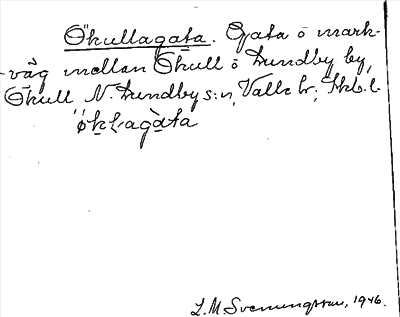 Ökullagata. Gata ō mark-
väg mellan Ökull ō Lundby by,
Ökull N. Lundby s:n, Valle hr; Skb. l.
L. M. Svenungsson, 1946.